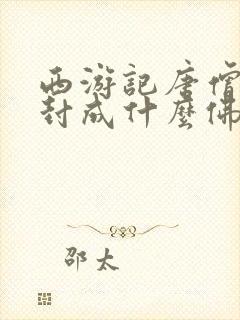 西游記唐僧
封成什麼佛
邵太